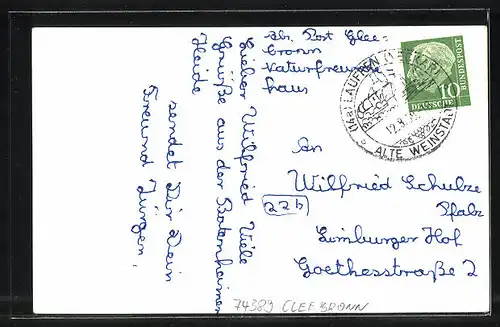 Abs. Post Clee-
bronn
Naturfreunde
haus
Lieber Wilfried Viele
Grüße aus der Bodenheimer
Heide
sendet Dir Dein
Freund Jürgen.
(14a) LAUFFEN (NECKAR)
12.8.
ALTE WEINSTADT
10
DEUTSCHE
BUNDESPOST
An
Wilfried Schulze
22b
Pfalz
Limburger Hof
Goethesstraße 2
74389 CLEEBRONN